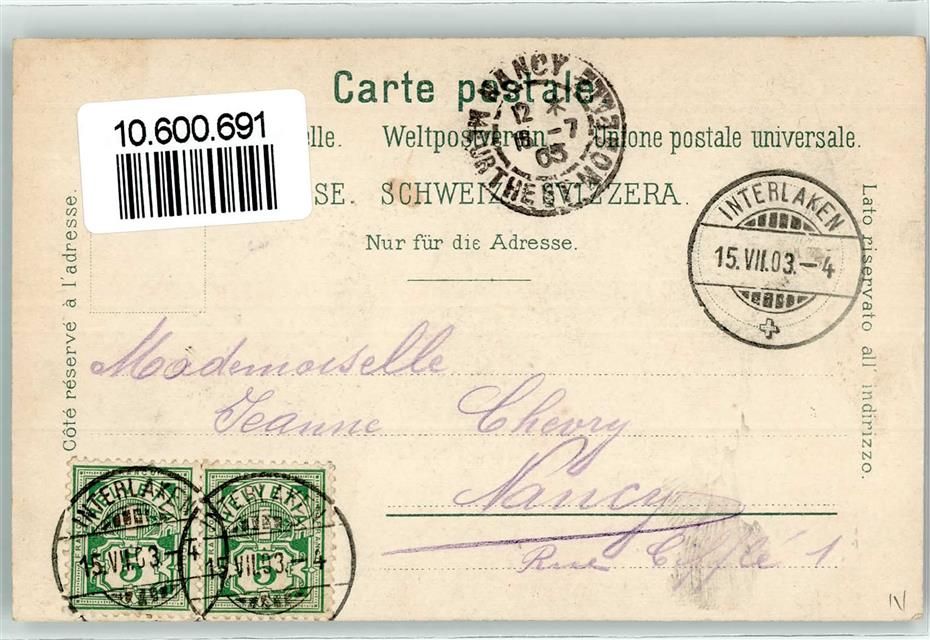 Carte postale
10.600.691
elle. Weltpostverein Unione postale universale.
SE. SCHWEIZ. SVIZZERA.
Nur für die Adresse.
Côté réservé à l'adresse.
Lato riservato all' indirizzo.
NANCY
12 *
16 -7
03
MEURTHE
INTERLAKEN
15.VII.03.-4
Mademoiselle
Jeanne Chevry
Nancy
Rue 1
INTERLAKEN
15.VII.03 4
5
INTERLAKEN
15.VII.03 - 4
5
IV